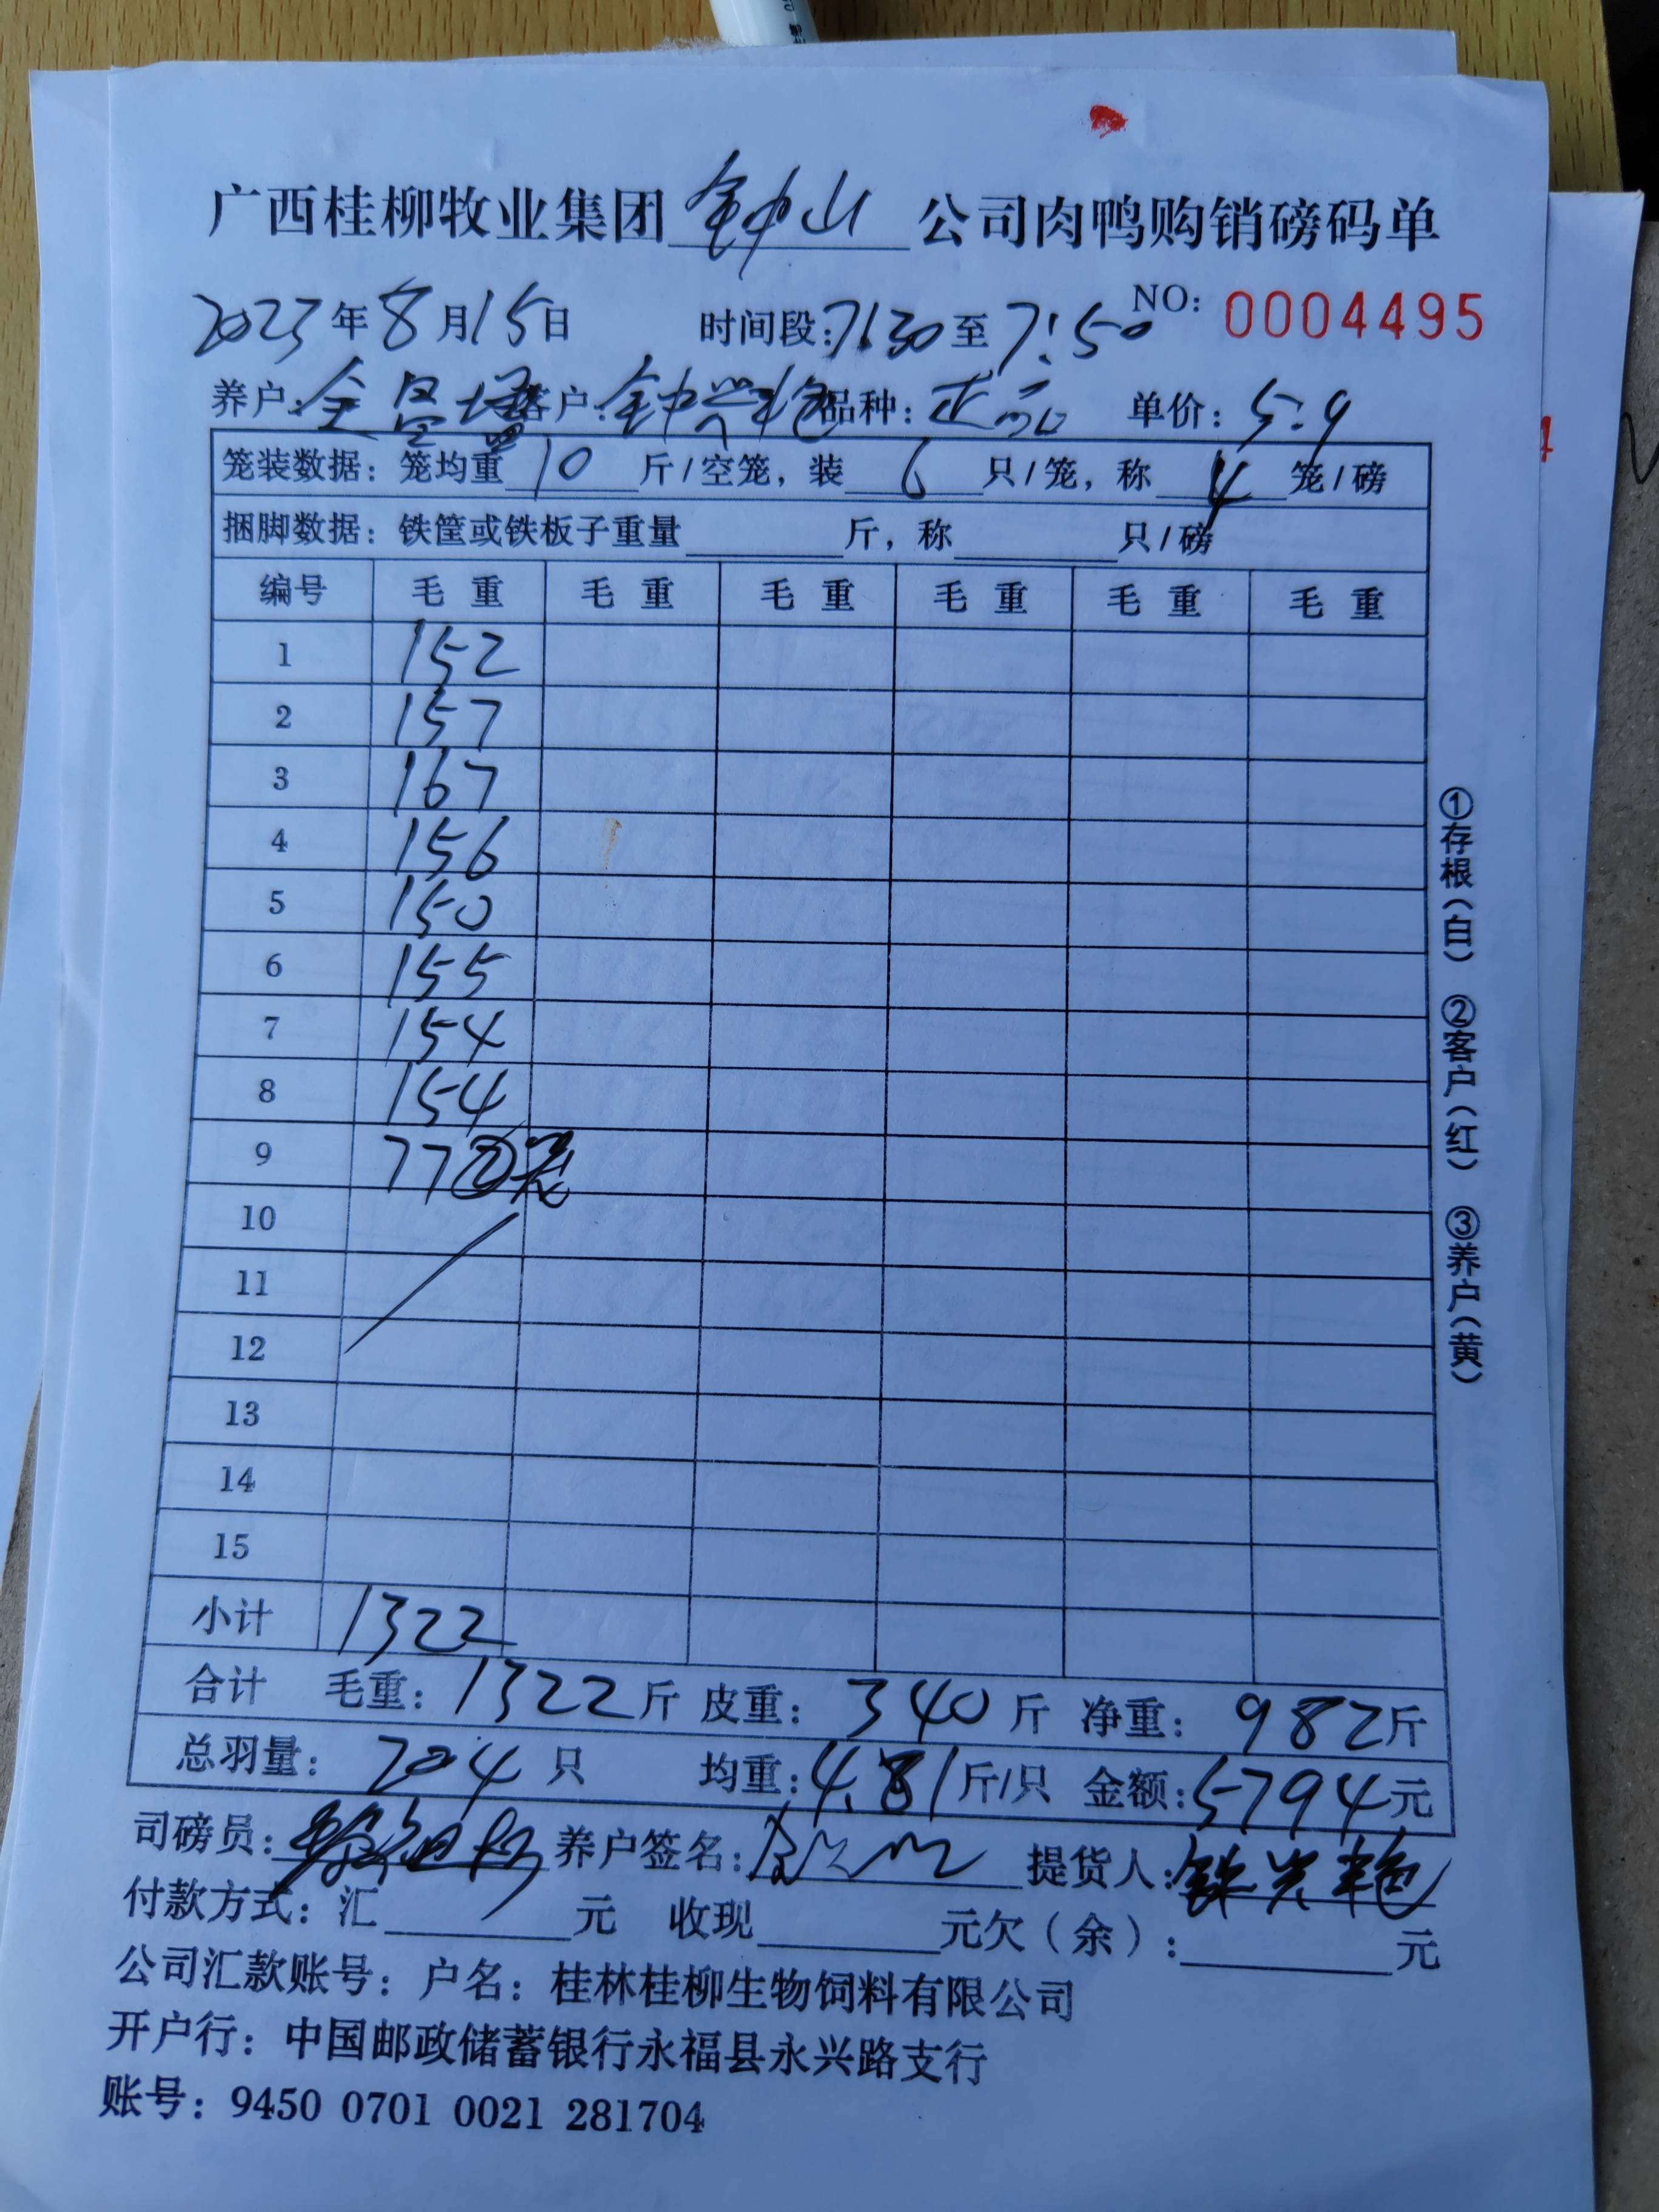 广西桂柳牧业集团 钟山 公司肉鸭购销磅码单
2023年8月15日 时间段:7:30至7:50 NO: 0004495
养户: 客户: 品种: 正品 单价: 5.9
笼装数据: 笼均重 10 斤/空笼, 装 6 只/笼, 称 4 笼/磅
捆脚数据: 铁筐或铁板子重量 斤, 称 只/磅
编号 毛重 毛重 毛重 毛重 毛重 毛重
1 152
2 157
3 167
4 156
5 150
6 155
7 154
8 154
9 77 ②笼
10
11
12
13
14
15
小计 1322
合计 毛重: 1322斤 皮重: 340斤 净重: 982斤
总羽量: 204只 均重: 4.81斤/只 金额: 5794元
司磅员: 养户签名: 提货人:
付款方式: 汇 元 收现 元欠(余): 元
公司汇款账号: 户名: 桂林桂柳生物饲料有限公司
开户行: 中国邮政储蓄银行永福县永兴路支行
账号: 9450 0701 0021 281704
①存根(白) ②客户(红) ③养户(黄)